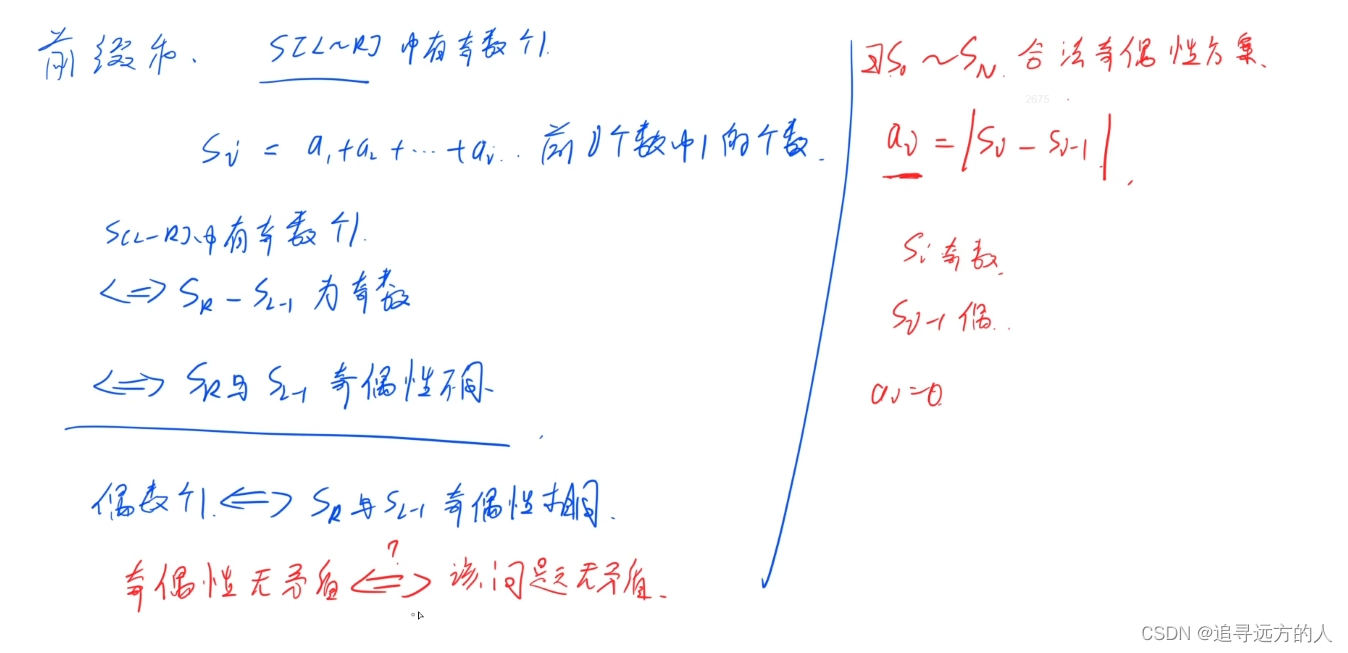 前缀和. S[L~R]中有奇数个1.
Si = a1+a2+…+ai. 前i个数中1的个数.
S[L~R]中有奇数个1.
<=> SR - SL-1 为奇数
<=> SR与SL-1 奇偶性不同.
偶数个1. <=> SR与SL-1 奇偶性相同.
?
奇偶性无矛盾 <=> 该问题无矛盾.
S0 ~ SN. 合法奇偶性方案.
2675
ai = |Si - Si-1|.
Si奇数.
Si-1偶..
ai=0
CSDN @追寻远方的人